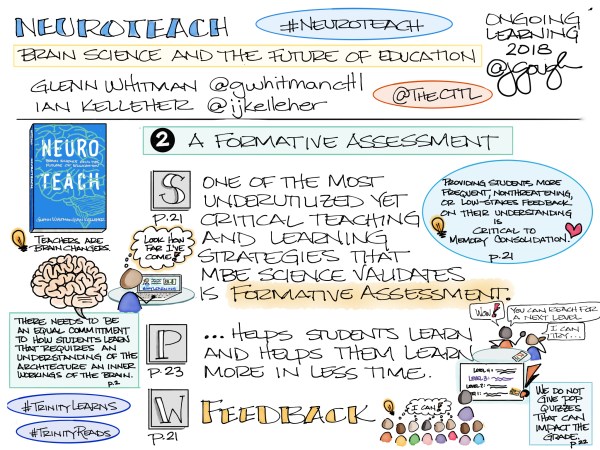 NEUROTEACH
#NEUROTEACH
ONGOING
LEARNING
2018
@jgough
BRAIN SCIENCE AND THE FUTURE OF EDUCATION
GLENN WHITMAN @gwhitmanctl
IAN KELLEHER @ijkelleher
@THECTTL
NEURO
BRAIN SCIENCE AND THE
FUTURE OF EDUCATION
TEACH
GLENN WHITMAN IAN KELLEHER
TEACHERS ARE
BRAIN CHANGERS.
2 A FORMATIVE ASSESSMENT
S
P.21
ONE OF THE MOST
UNDERUTILIZED YET
CRITICAL TEACHING
AND LEARNING
STRATEGIES THAT
MBE SCIENCE VALIDATES
IS FORMATIVE ASSESSMENT.
PROVIDING STUDENTS MORE
FREQUENT, NONTHREATENING,
OR LOW-STAKES FEEDBACK
ON THEIR UNDERSTANDING
IS
CRITICAL TO
MEMORY CONSOLIDATION.
p.21
LOOK HOW
FAR I'VE
COME!
THERE NEEDS TO BE
AN EQUAL COMMITMENT
TO HOW STUDENTS LEARN
THAT REQUIRES AN
UNDERSTANDING OF THE
ARCHITECTURE AN INNER
WORKINGS OF THE BRAIN.
p.2
P
P.23
... HELPS STUDENTS LEARN
AND HELPS THEM LEARN
MORE IN LESS TIME.
WOW!
YOU CAN REACH FOR
A NEXT LEVEL.
I CAN
TRY...
LEVEL 4:
LEVEL 3:
LEVEL 2:
#TRINITYLEARNS
#TRINITYREADS
W
P.21
FEEDBACK
I CAN!
WE DO NOT
GIVE POP
QUIZZES
THAT CAN
IMPACT THE
GRADE.
p.22